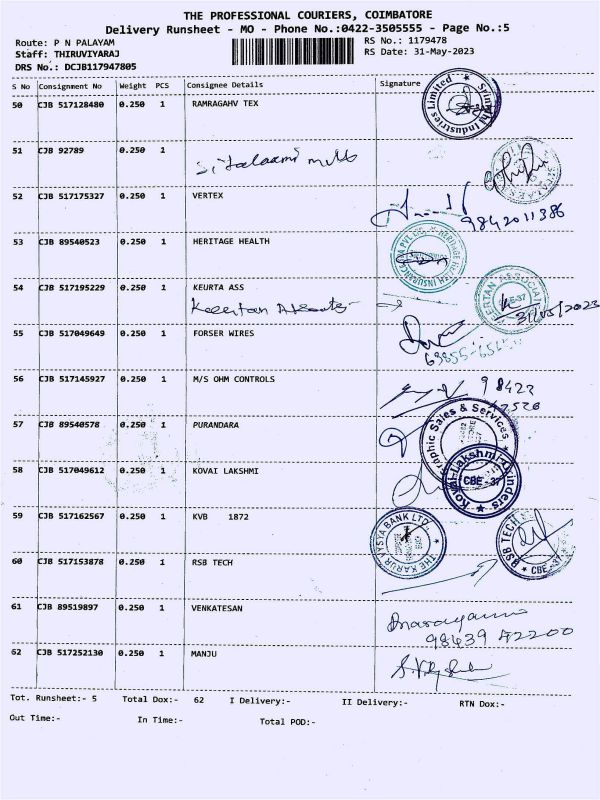 THE PROFESSIONAL COURIERS, COIMBATORE
Delivery Runsheet - MO - Phone No.:0422-3505555 - Page No.:5
Route: P N PALAYAM RS No.: 1179478
Staff: THIRUVIYARAJ RS Date: 31-May-2023
DRS No.: DCJB117947805
S No Consignment No Weight PCS Consignee Details Signature
50 CJB 517128480 0.250 1 RAMRAGAHV TEX
Industries Limited
51 CJB 92789 0.250 1
52 CJB 517175327 0.250 1 VERTEX
9842011386
53 CJB 89540523 0.250 1 HERITAGE HEALTH
54 CJB 517195229 0.250 1 KEURTA ASS
Keertan
CBE-37
31/05/2023
55 CJB 517049649 0.250 1 FORSER WIRES
56 CJB 517145927 0.250 1 M/S OHM CONTROLS
98422
57 CJB 89540578 0.250 1 PURANDARA
graphic Sales & Services
58 CJB 517049612 0.250 1 KOVAI LAKSHMI
Kovai Lakshmi Grinders
CBE -37
59 CJB 517162567 0.250 1 KVB 1872
THE KARUR VYSYA BANK LTD.
60 CJB 517153878 0.250 1 RSB TECH
RSB TECH
CBE-37
61 CJB 89519897 0.250 1 VENKATESAN
98439 72200
62 CJB 517252130 0.250 1 MANJU
Tot. Runsheet:- 5 Total Dox:- 62 I Delivery:- II Delivery:- RTN Dox:-
Out Time:- In Time:- Total POD:-